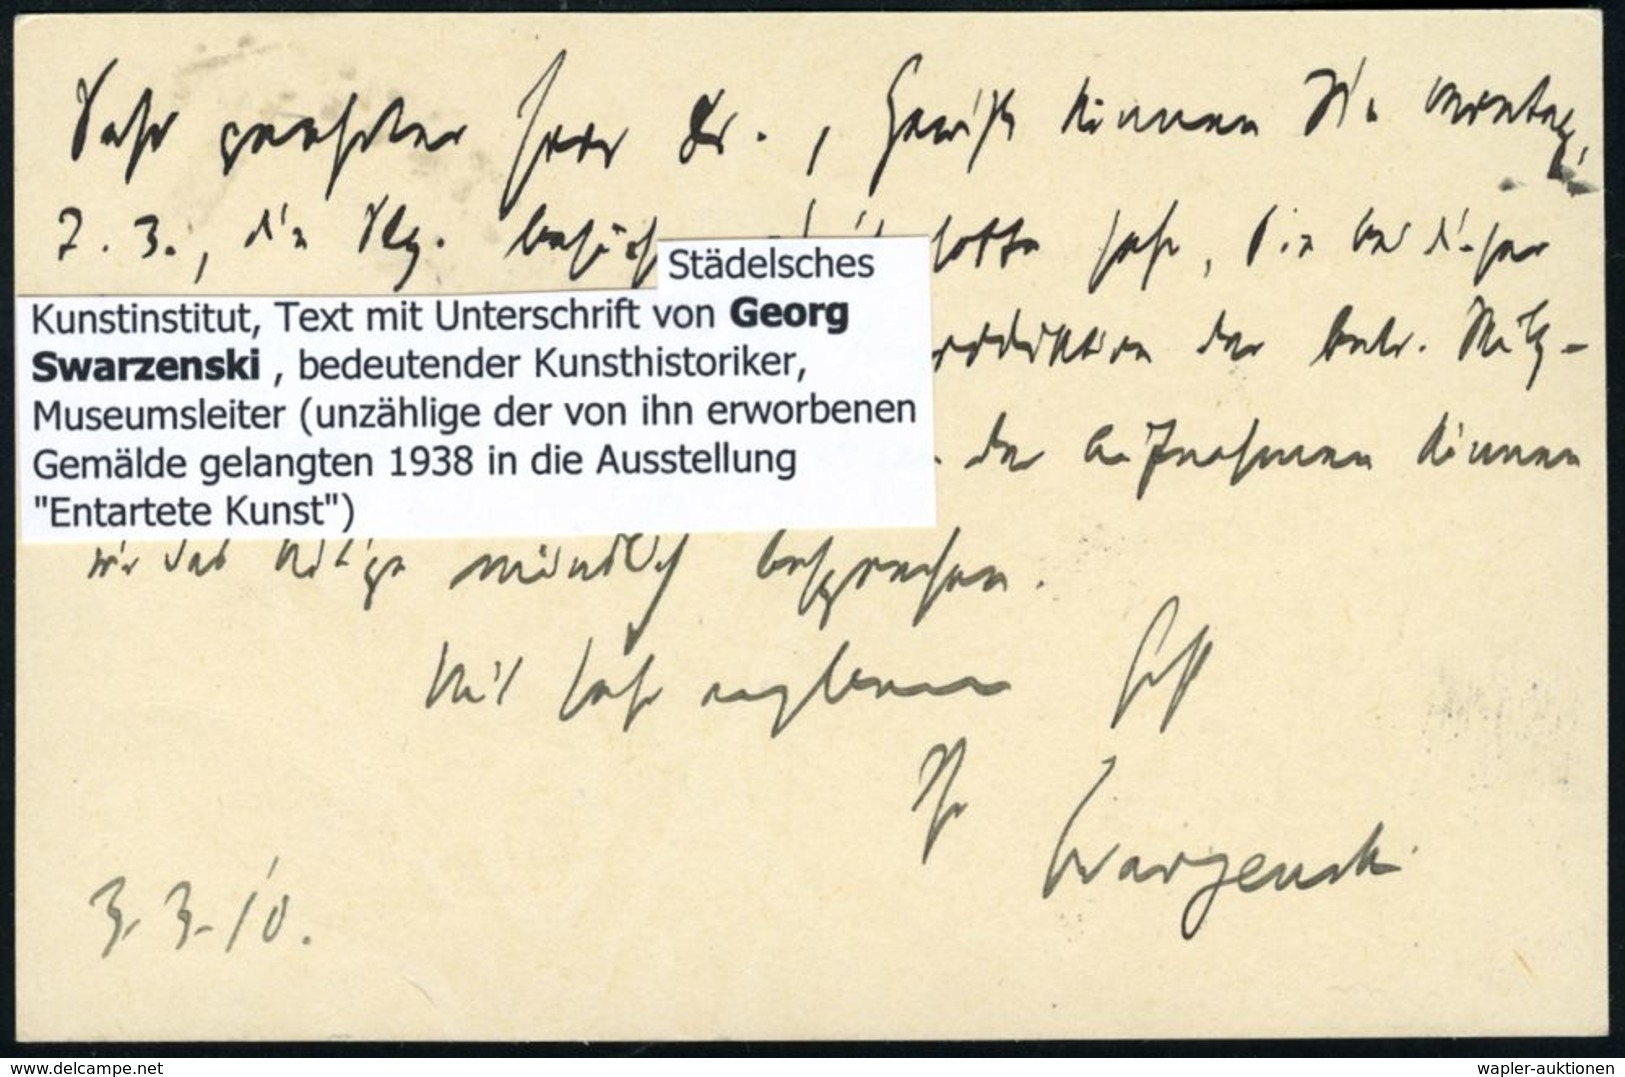 Sehr geehrter Herr Dr., Gewiß können Sie Montag,
7. 3., die Slg. besich hoffe sehr, Sie bei dieser
roduktion der betr. Stütz-
der Aufnahmen können
wir das Nötige mündlich besprechen.
Mit sehr ergebenem
Ihr
Swarzenski
3. 3. 10.
Städelsches
Kunstinstitut, Text mit Unterschrift von Georg
Swarzenski , bedeutender Kunsthistoriker,
Museumsleiter (unzählige der von ihn erworbenen
Gemälde gelangten 1938 in die Ausstellung
"Entartete Kunst")
www.delcampe.net
wapler-auktionen